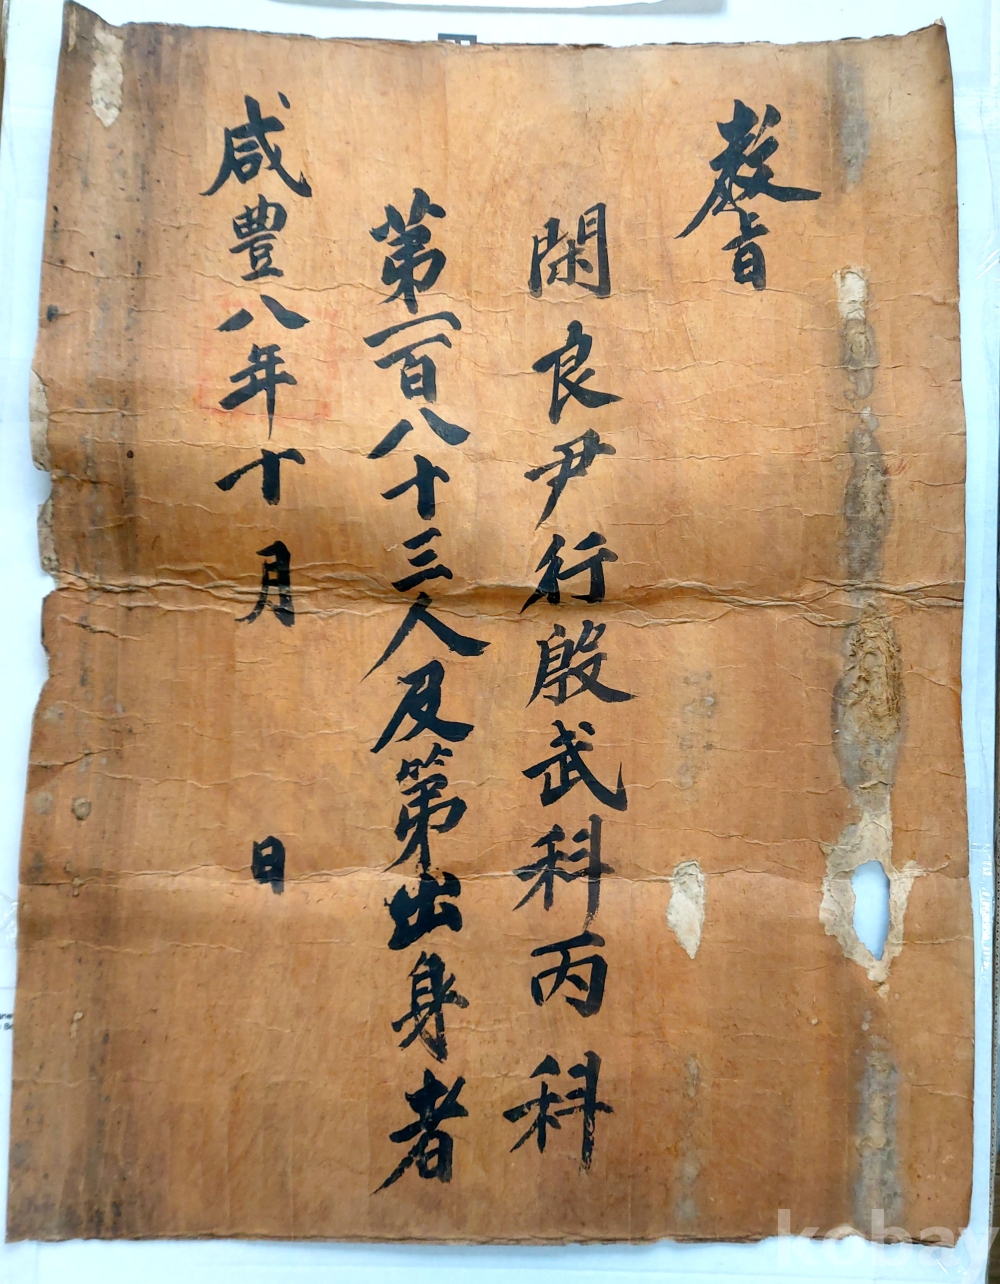 敎旨
閑良尹行殷武科丙科
第一百八十三人及第出身者
咸豊八年十月 日
kobay